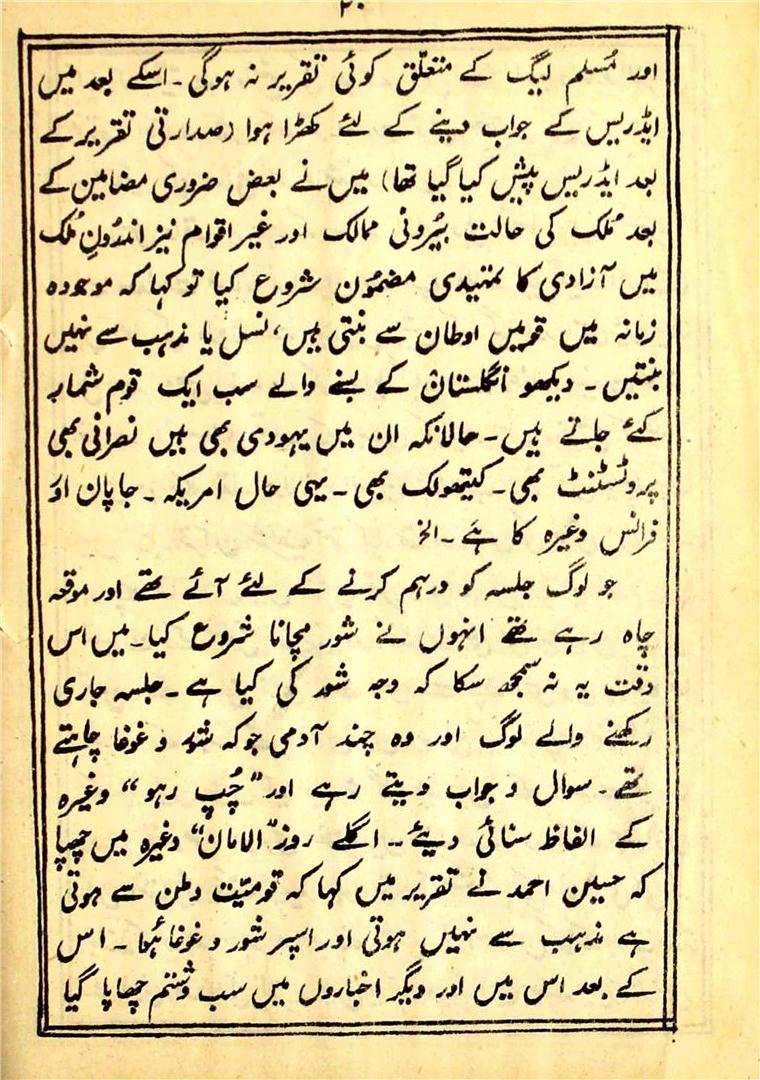 ۲۰
اور مُسلم لیگ کے متعلّق کوئی تقریر نہ ہوگی۔ اسکے بعد میں
ایڈریس کے جواب دینے کے لئے کھڑا ہوا (صدارتی تقریر کے
بعد ایڈریس پیش کیا گیا تھا) میں نے بعض ضروری مضامین کے
بعد مُلک کی حالت بیُرونی ممالک اور غیر اقوام نیز اندُرونِ مُلک
میں آزادی کا تمہیدی مضموُن شروع کیا تو کہا کہ موجودہ
زمانہ میں قومیں اوطان سے بنتی ہیں، نسل یا مذہب سے نہیں
بنتیں۔ دیکھو انگلستان کے بسنے والے سب ایک قوم شمار
کئے جاتے ہیں۔ حالانکہ ان میں یہودی بھی ہیں نصرانی بھی
پروٹسٹنٹ بھی۔ کیتھولک بھی۔ یہی حال امریکہ۔ جاپان اور
فرانس وغیرہ کا ہے۔ الخ
جو لوگ جلسہ کو درہم کرنے کے لئے آئے تھے اور موقعہ
چاہ رہے تھے انہوں نے شور مچانا شروع کیا۔ میں اس
وقت یہ نہ سمجھ سکا کہ وجہ شور کی کیا ہے۔ جلسہ جاری
رکھنے والے لوگ اور وہ چند آدمی جو کہ شور و غوغا چاہتے
تھے۔ سوال و جواب دیتے رہے اور ”چُپ رہو“ وغیرہ
کے الفاظ سنائی دیئے۔ اگلے روز ”الامان“ وغیرہ میں چھپا
کہ حسین احمد نے تقریر میں کہا کہ قومیّت وطن سے ہوتی
ہے مذہب سے نہیں ہوتی اور اسپر شور و غوغا ہُوا۔ اس
کے بعد اس میں اور دیگر اخباروں میں سب وشتم چھاپا گیا